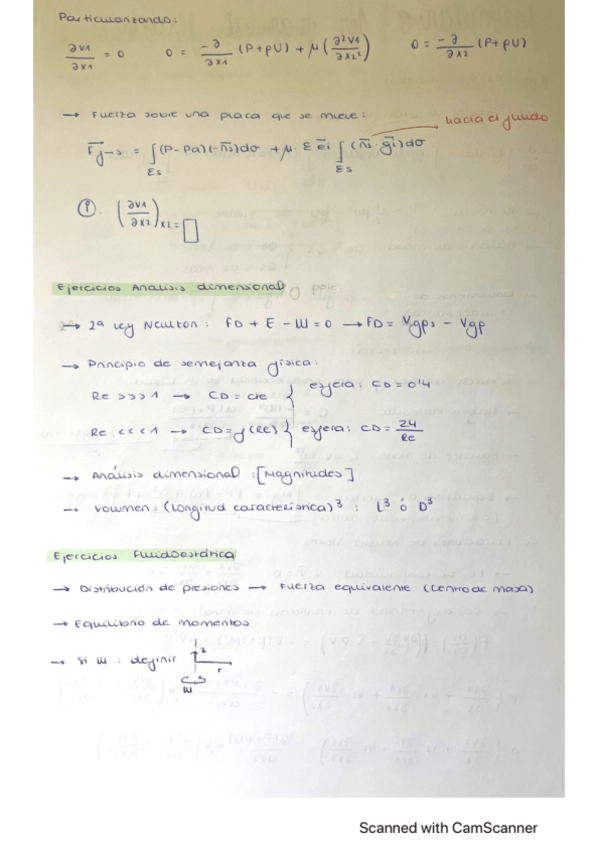 Particularizando:
∂v1/∂x1 = 0   0 = -∂/∂x1 (P+ρU) + μ(∂²v1/∂x2²)   0 = -∂/∂x2 (P+ρU)
→ Fuerza sobre una placa que se mueve:
hacia el fluido
F⃗f→s = ∫Σs (P-Pa)(-n⃗s)dσ + μ· Σ e⃗i ∫Σs (n⃗s·g⃗i)dσ
(∂v1/∂x2)x2=□
Ejercicios Análisis dimensional
→ 2ª ley Newton: FD + E - W = 0 → FD = Vgρs - Vgρ
→ Principio de semejanza física:
Re >>> 1 → CD = cte } esfera: CD = 0'4
Re <<< 1 → CD = f(Re) } esfera: CD = 24/Re
→ Análisis dimensional: [Magnitudes]
→ Volumen: (longitud característica)³ : L³ ó D³
Ejercicios Fluidoestática
→ Distribución de presiones → Fuerza equivalente (centro de masa)
→ Equilibrio de momentos
→ Si w: definir z r
w
Scanned with CamScanner